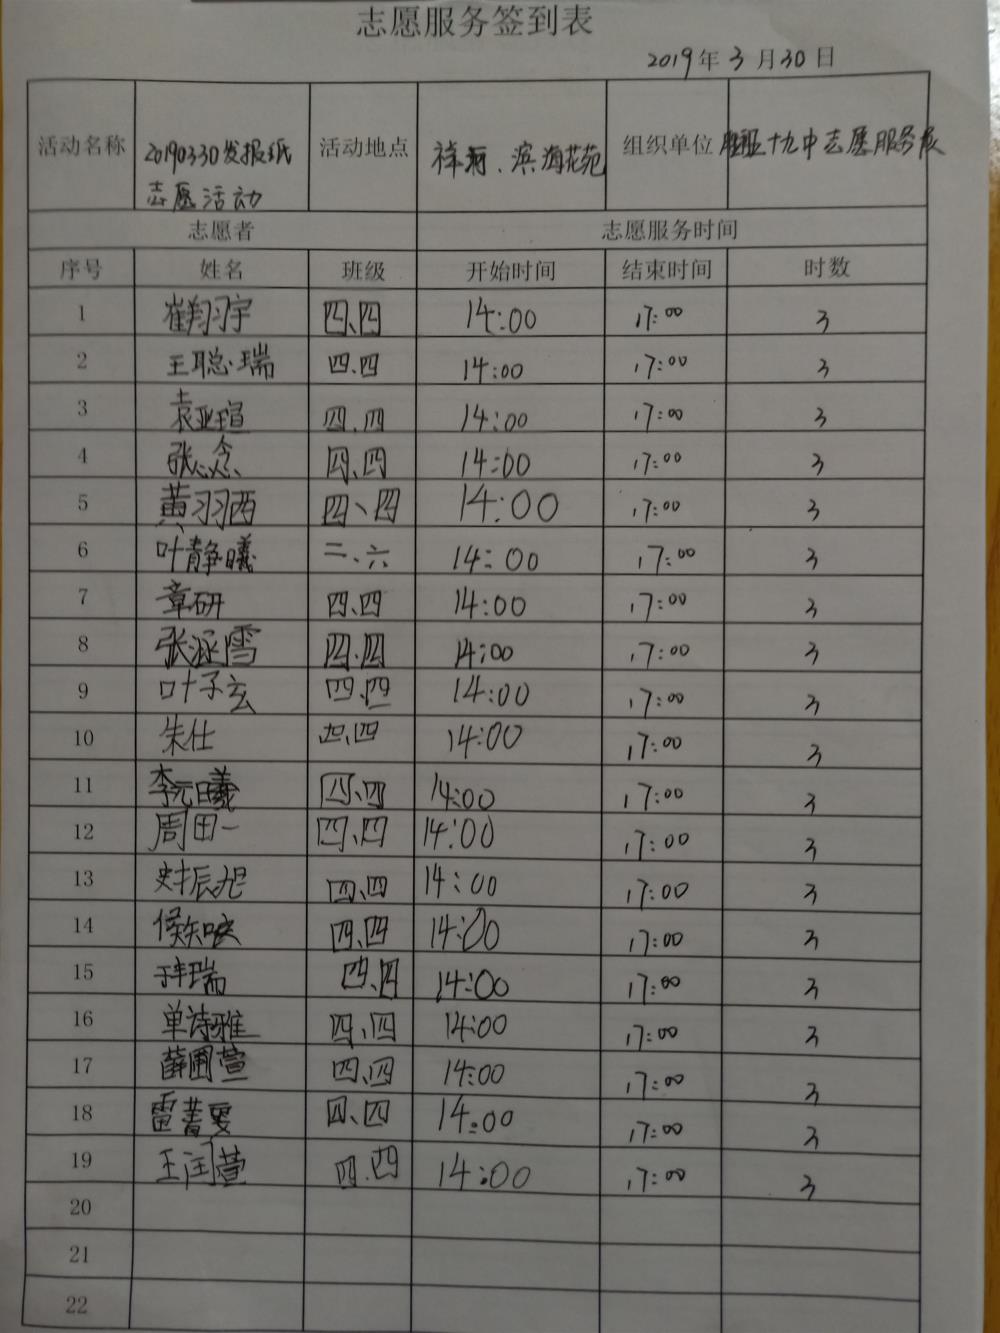 志愿服务签到表
2019年3月30日
活动名称 20190330发报纸 志愿活动 活动地点 滨海花苑 组织单位 十九中志愿服务队
志愿者 志愿服务时间
序号 姓名 班级 开始时间 结束时间 时数
1 崔翔宇 四、四 14:00 17:00 3
2 王聪瑞 四.四 14:00 17:00 3
3 袁亚瑄 四.四 14:00 17:00 3
4 张念 四、四 14:00 17:00 3
5 黄羽西 四、四 14:00 17:00 3
6 叶静曦 二、六 14:00 17:00 3
7 章研 四.四 14:00 17:00 3
8 张涵雪 四.四 14:00 17:00 3
9 叶子玄 四.四 14:00 17:00 3
10 朱仕 四、四 14:00 17:00 3
11 李元曦 四、四 14:00 17:00 3
12 周田一 四、四 14:00 17:00 3
13 辰旭 四、四 14:00 17:00 3
14 侯知 四、四 14:00 17:00 3
15 瑞 四、四 14:00 17:00 3
16 单诗雅 四、四 14:00 17:00 3
17 薛圃萱 四、四 14:00 17:00 3
18 雷 四、四 14:00 17:00 3
19 王润萱 四.四 14:00 17:00 3
20
21
22